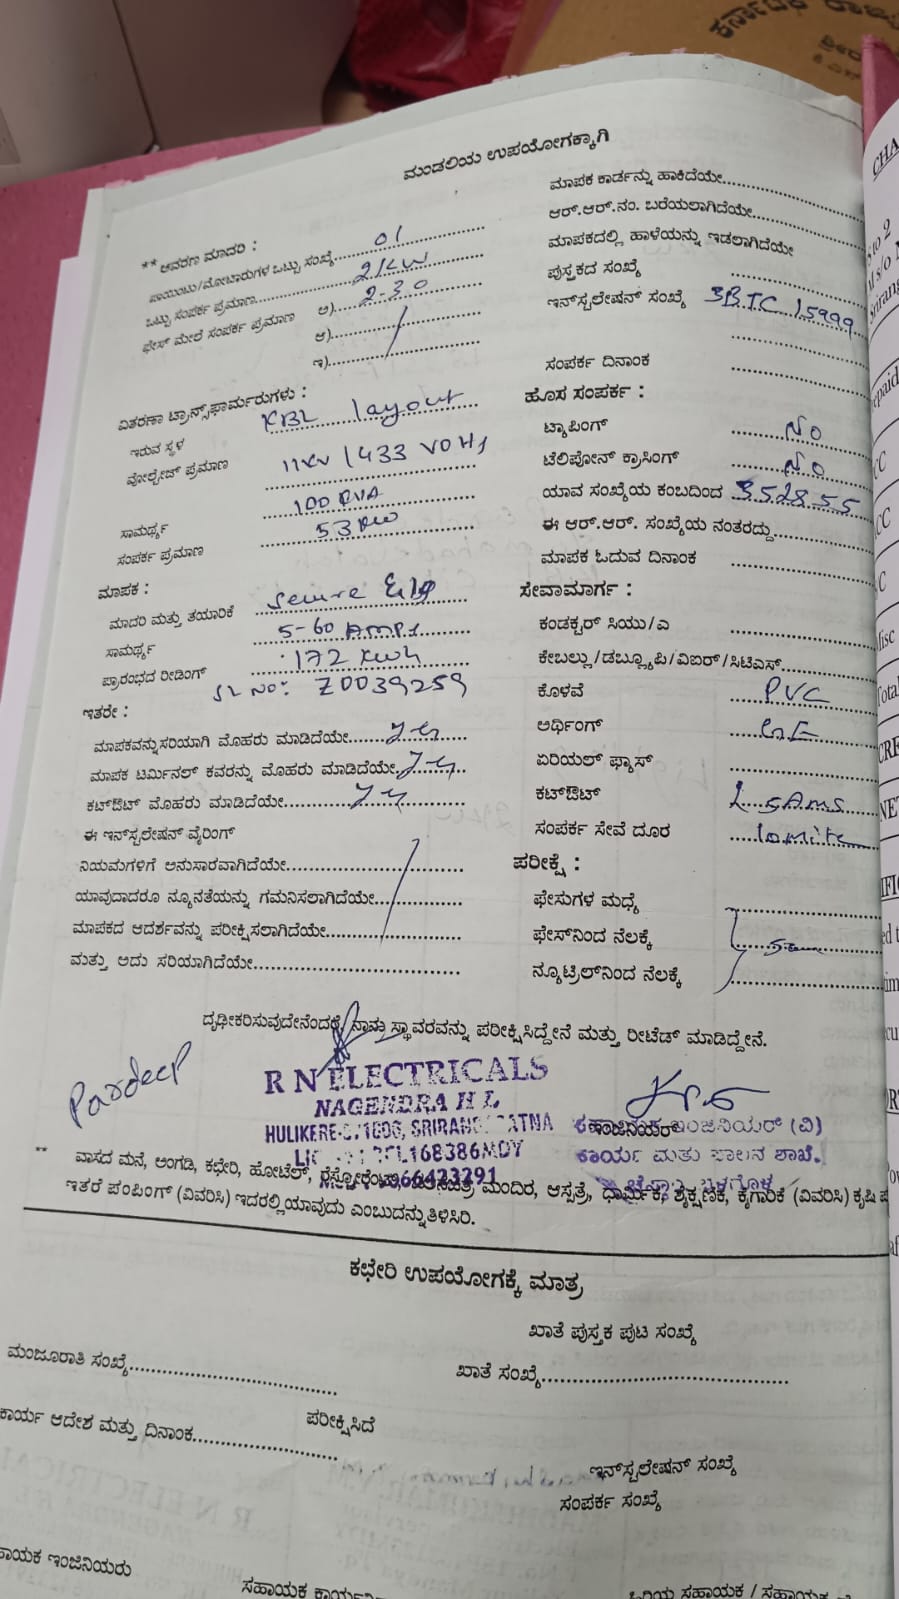 ಕರ್ನಾಟಕ
ಮಂಡಲಿಯ ಉಪಯೋಗಕ್ಕಾಗಿ
** ಆವರಣ ಮಾದರಿ :
ಪಾಯಿಂಟು/ಮೋಟಾರುಗಳ ಒಟ್ಟು ಸಂಖ್ಯೆ 01
ಒಟ್ಟು ಸಂಪರ್ಕ ಪ್ರಮಾಣ 2KW
ಫೇಸ್ ಮೇಲೆ ಸಂಪರ್ಕ ಪ್ರಮಾಣ ಅ) 2-30
ಆ)
ಇ)
ವಿತರಣಾ ಟ್ರಾನ್ಸ್‌ಫಾರ್ಮರುಗಳು :
ಇರುವ ಸ್ಥಳ KBL layout
ವೋಲ್ಟೇಜ್ ಪ್ರಮಾಣ 11KV / 433
ಸಾಮರ್ಥ್ಯ 100 KVA
ಸಂಪರ್ಕ ಪ್ರಮಾಣ 53
ಮಾಪಕ :
ಮಾದರಿ ಮತ್ತು ತಯಾರಿಕೆ
ಸಾಮರ್ಥ್ಯ 5-60 AMPS
ಪ್ರಾರಂಭದ ರೀಡಿಂಗ್ 172 KWh
SL NO: Z0039259
ಇತರೇ :
ಮಾಪಕವನ್ನು ಸರಿಯಾಗಿ ಮೊಹರು ಮಾಡಿದೆಯೇ
ಮಾಪಕ ಟರ್ಮಿನಲ್ ಕವರನ್ನು ಮೊಹರು ಮಾಡಿದೆಯೇ
ಕಟ್‌ಔಟ್ ಮೊಹರು ಮಾಡಿದೆಯೇ
ಈ ಇನ್‌ಸ್ಟಲೇಷನ್ ವೈರಿಂಗ್
ನಿಯಮಗಳಿಗೆ ಅನುಸಾರವಾಗಿದೆಯೇ
ಯಾವುದಾದರೂ ನ್ಯೂನತೆಯನ್ನು ಗಮನಿಸಲಾಗಿದೆಯೇ
ಮಾಪಕದ ಆದರ್ಶವನ್ನು ಪರೀಕ್ಷಿಸಲಾಗಿದೆಯೇ
ಮತ್ತು ಅದು ಸರಿಯಾಗಿದೆಯೇ
ಮಾಪಕ ಕಾರ್ಡನ್ನು ಹಾಕಿದೆಯೇ
ಆರ್.ಆರ್.ನಂ. ಬರೆಯಲಾಗಿದೆಯೇ
ಮಾಪಕದಲ್ಲಿ ಹಾಳೆಯನ್ನು ಇಡಲಾಗಿದೆಯೇ
ಪುಸ್ತಕದ ಸಂಖ್ಯೆ
ಇನ್‌ಸ್ಟಲೇಷನ್ ಸಂಖ್ಯೆ SBTC 15999
ಸಂಪರ್ಕ ದಿನಾಂಕ
ಹೊಸ ಸಂಪರ್ಕ :
ಟ್ಯಾಪಿಂಗ್ NO
ಟೆಲಿಪೋನ್ ಕ್ರಾಸಿಂಗ್ NO
ಯಾವ ಸಂಖ್ಯೆಯ ಕಂಬದಿಂದ
ಈ ಆರ್.ಆರ್. ಸಂಖ್ಯೆಯ ನಂತರದ್ದು
ಮಾಪಕ ಓದುವ ದಿನಾಂಕ
ಸೇವಾಮಾರ್ಗ :
ಕಂಡಕ್ಟರ್ ಸಿಯು/ಎ
ಕೇಬಲ್ಲು/ಡಬ್ಲ್ಯೂಪಿ/ವಿಐರ್/ಸಿಟಿಎಸ್
ಕೊಳವೆ PVC
ಅರ್ಥಿಂಗ್
ಏರಿಯಲ್ ಫ್ಯಾಸ್
ಕಟ್‌ಔಟ್
ಸಂಪರ್ಕ ಸೇವೆ ದೂರ
ಪರೀಕ್ಷೆ :
ಫೇಸುಗಳ ಮಧ್ಯೆ
ಫೇಸ್‌ನಿಂದ ನೆಲಕ್ಕೆ
ನ್ಯೂಟ್ರಿಲ್‌ನಿಂದ ನೆಲಕ್ಕೆ
ದೃಢೀಕರಿಸುವುದೇನೆಂದರೆ, ನಾನು ಸ್ಥಾವರವನ್ನು ಪರೀಕ್ಷಿಸಿದ್ದೇನೆ ಮತ್ತು ರೀಟೆಡ್ ಮಾಡಿದ್ದೇನೆ.
Pardeep
R N ELECTRICALS
NAGENDRA H L
HULIKERE
ಇಂಜಿನಿಯರ್ (ವಿ)
ಕಾರ್ಯ ಮತ್ತು ಪಾಲನ ಶಾಖೆ.
** ವಾಸದ ಮನೆ, ಅಂಗಡಿ, ಕಛೇರಿ, ಹೋಟೆಲ್, ಮಂದಿರ, ಆಸ್ಪತ್ರೆ, ಧಾರ್ಮಿಕ, ಶೈಕ್ಷಣಿಕ, ಕೈಗಾರಿಕೆ (ವಿವರಿಸಿ) ಕೃಷಿ
ಇತರೆ ಪಂಪಿಂಗ್ (ವಿವರಿಸಿ) ಇದರಲ್ಲಿ ಯಾವುದು ಎಂಬುದನ್ನು ತಿಳಿಸಿರಿ.
ಕಛೇರಿ ಉಪಯೋಗಕ್ಕೆ ಮಾತ್ರ
ಖಾತೆ ಪುಸ್ತಕ ಪುಟ ಸಂಖ್ಯೆ
ಮಂಜೂರಾತಿ ಸಂಖ್ಯೆ
ಖಾತೆ ಸಂಖ್ಯೆ
ಕಾರ್ಯ ಆದೇಶ ಮತ್ತು ದಿನಾಂಕ
ಪರೀಕ್ಷಿಸಿದೆ
ಇನ್‌ಸ್ಟಲೇಷನ್ ಸಂಖ್ಯೆ
ಸಂಪರ್ಕ ಸಂಖ್ಯೆ
ಇಂಜಿನಿಯರು
ಸಹಾಯಕ
ಹಿರಿಯ ಸಹಾಯಕ /